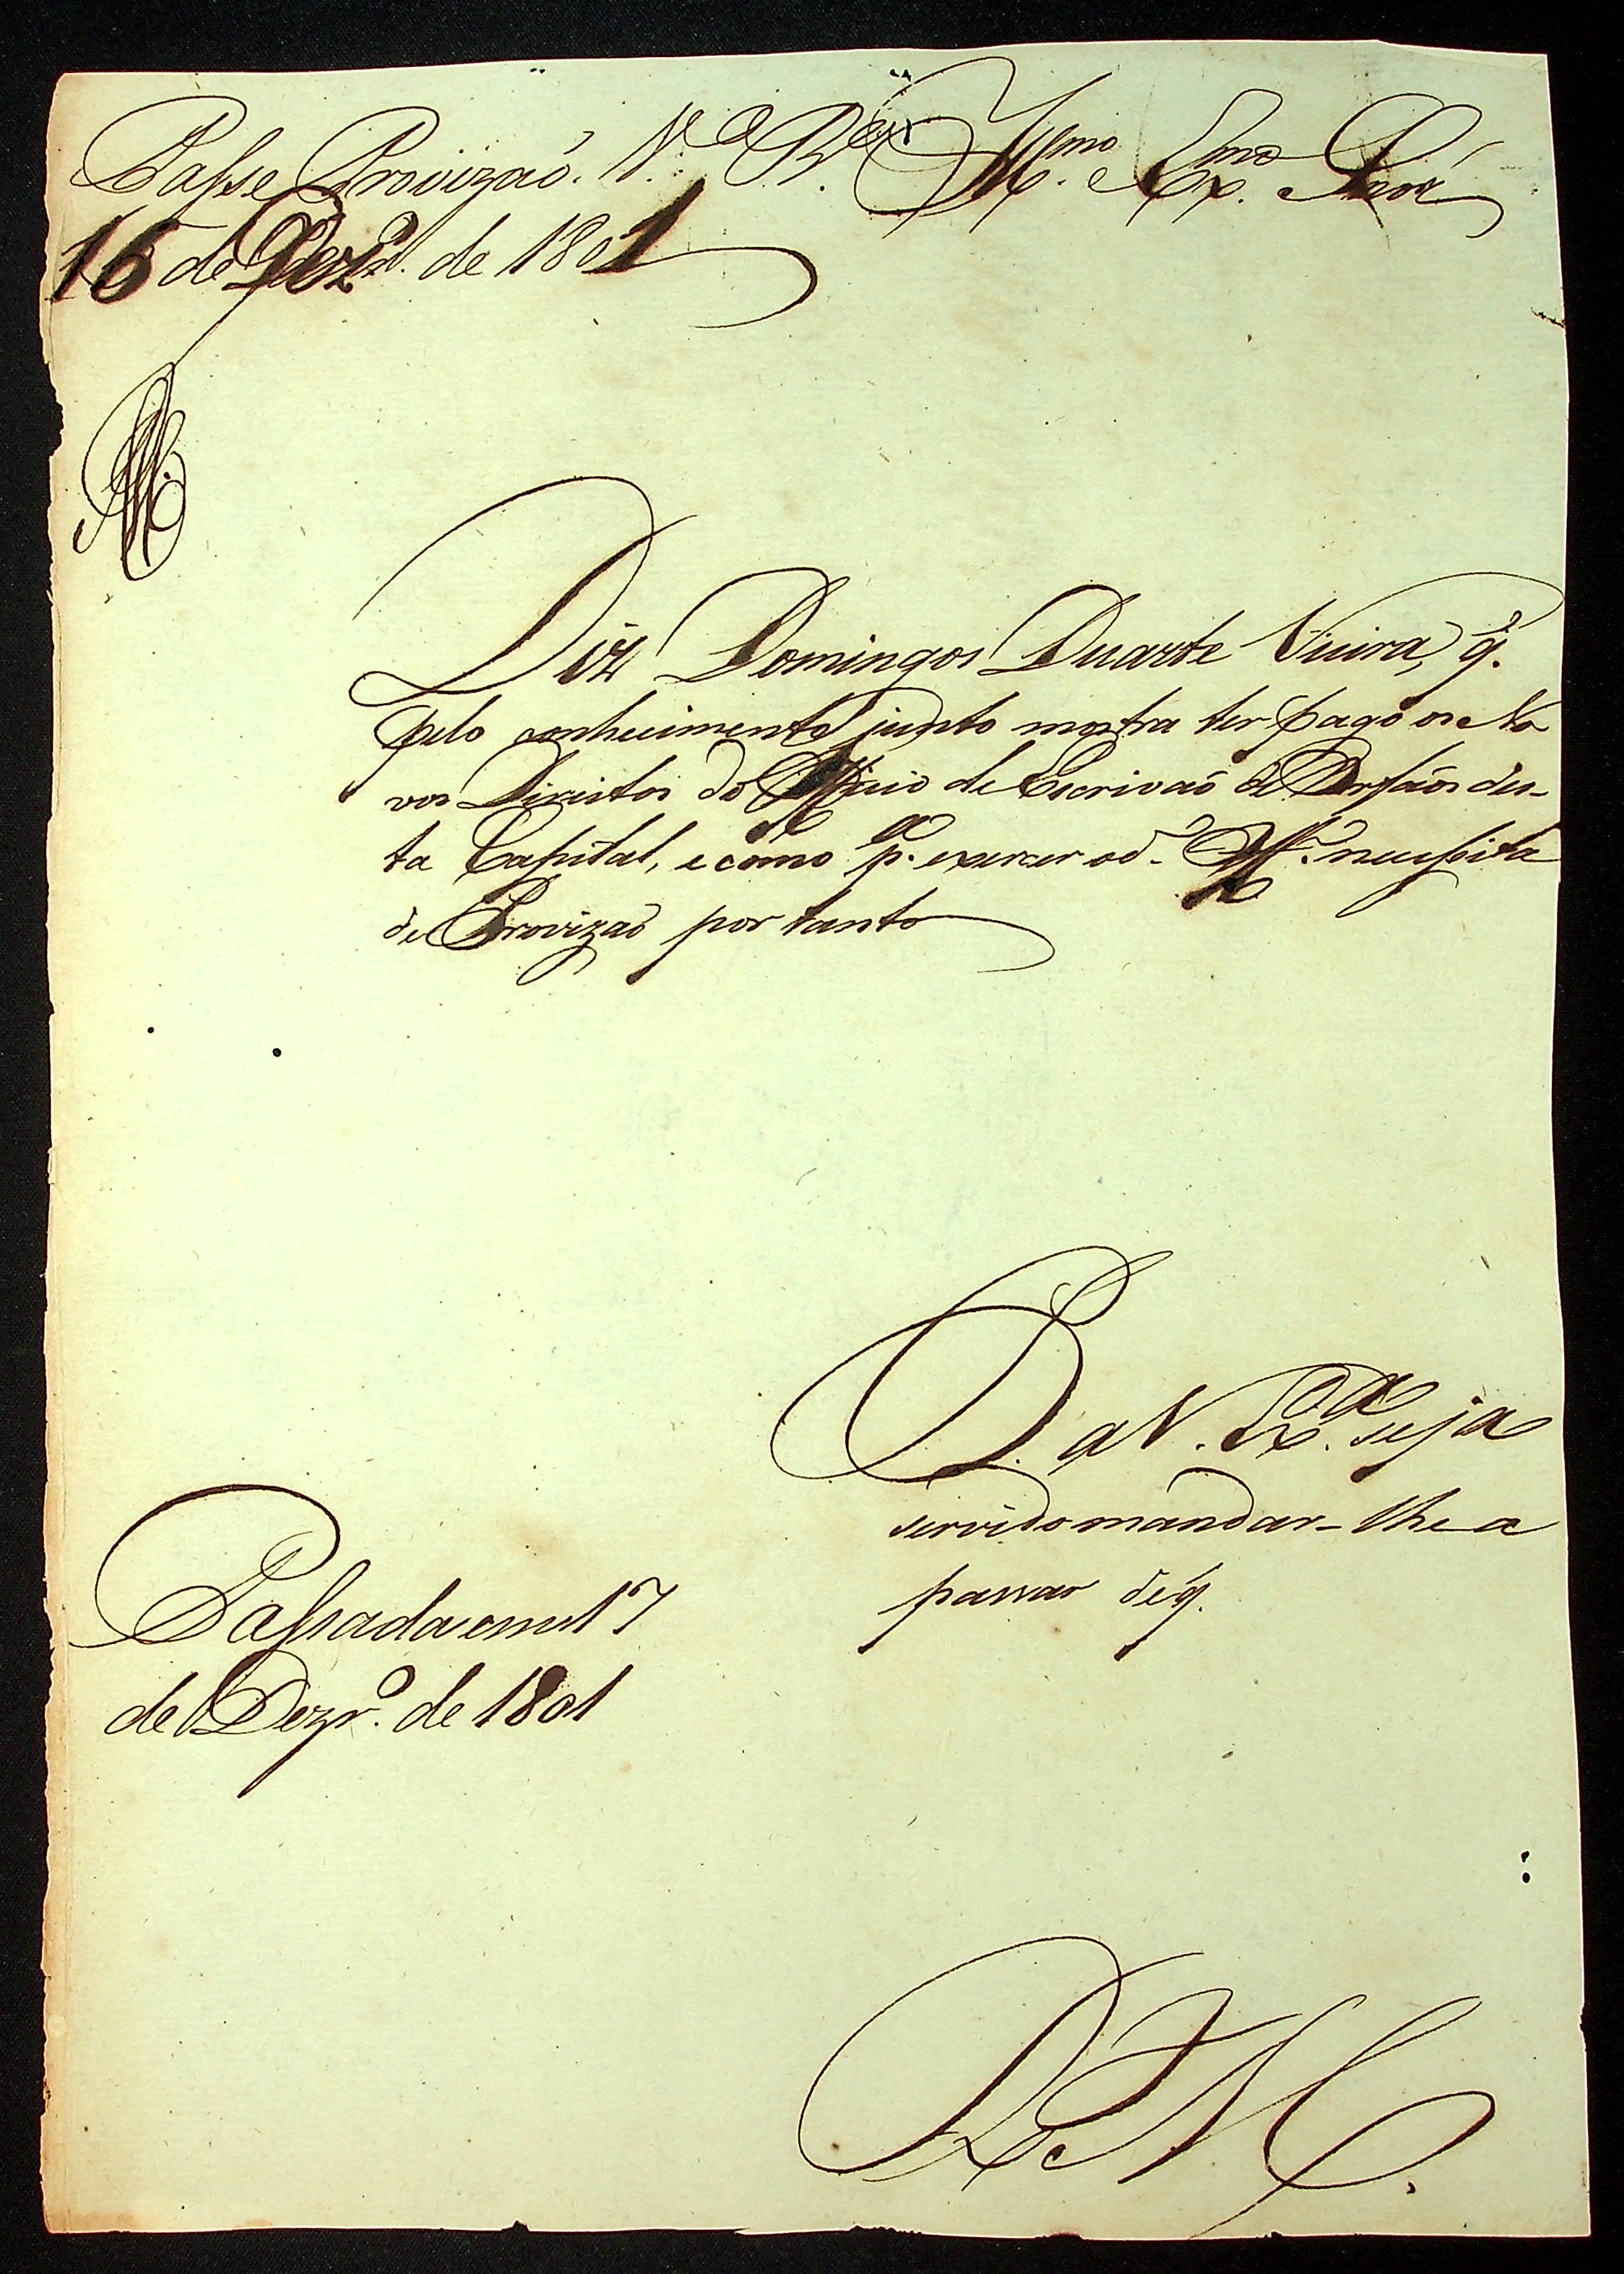 Passe Provizaõ. V.ª R.ª
16 de Dezr.º de 1801
Ill.mo Ex.mo Snr.
Diz Domingos Duarte Vieira, q.
pelo conhecimento junto mostra ter pago os No
vos Direitos do Officio de Escrivaõ de Orfaõs des-
ta Capital, e como p.ª exercer o d.º Off.º necessita
de Provizaõ por tanto
P. a V. Ex.ª seja
servido mandar-lhe a
passar de q.
Passada em 17
de Dezr.º de 1801
E R M.